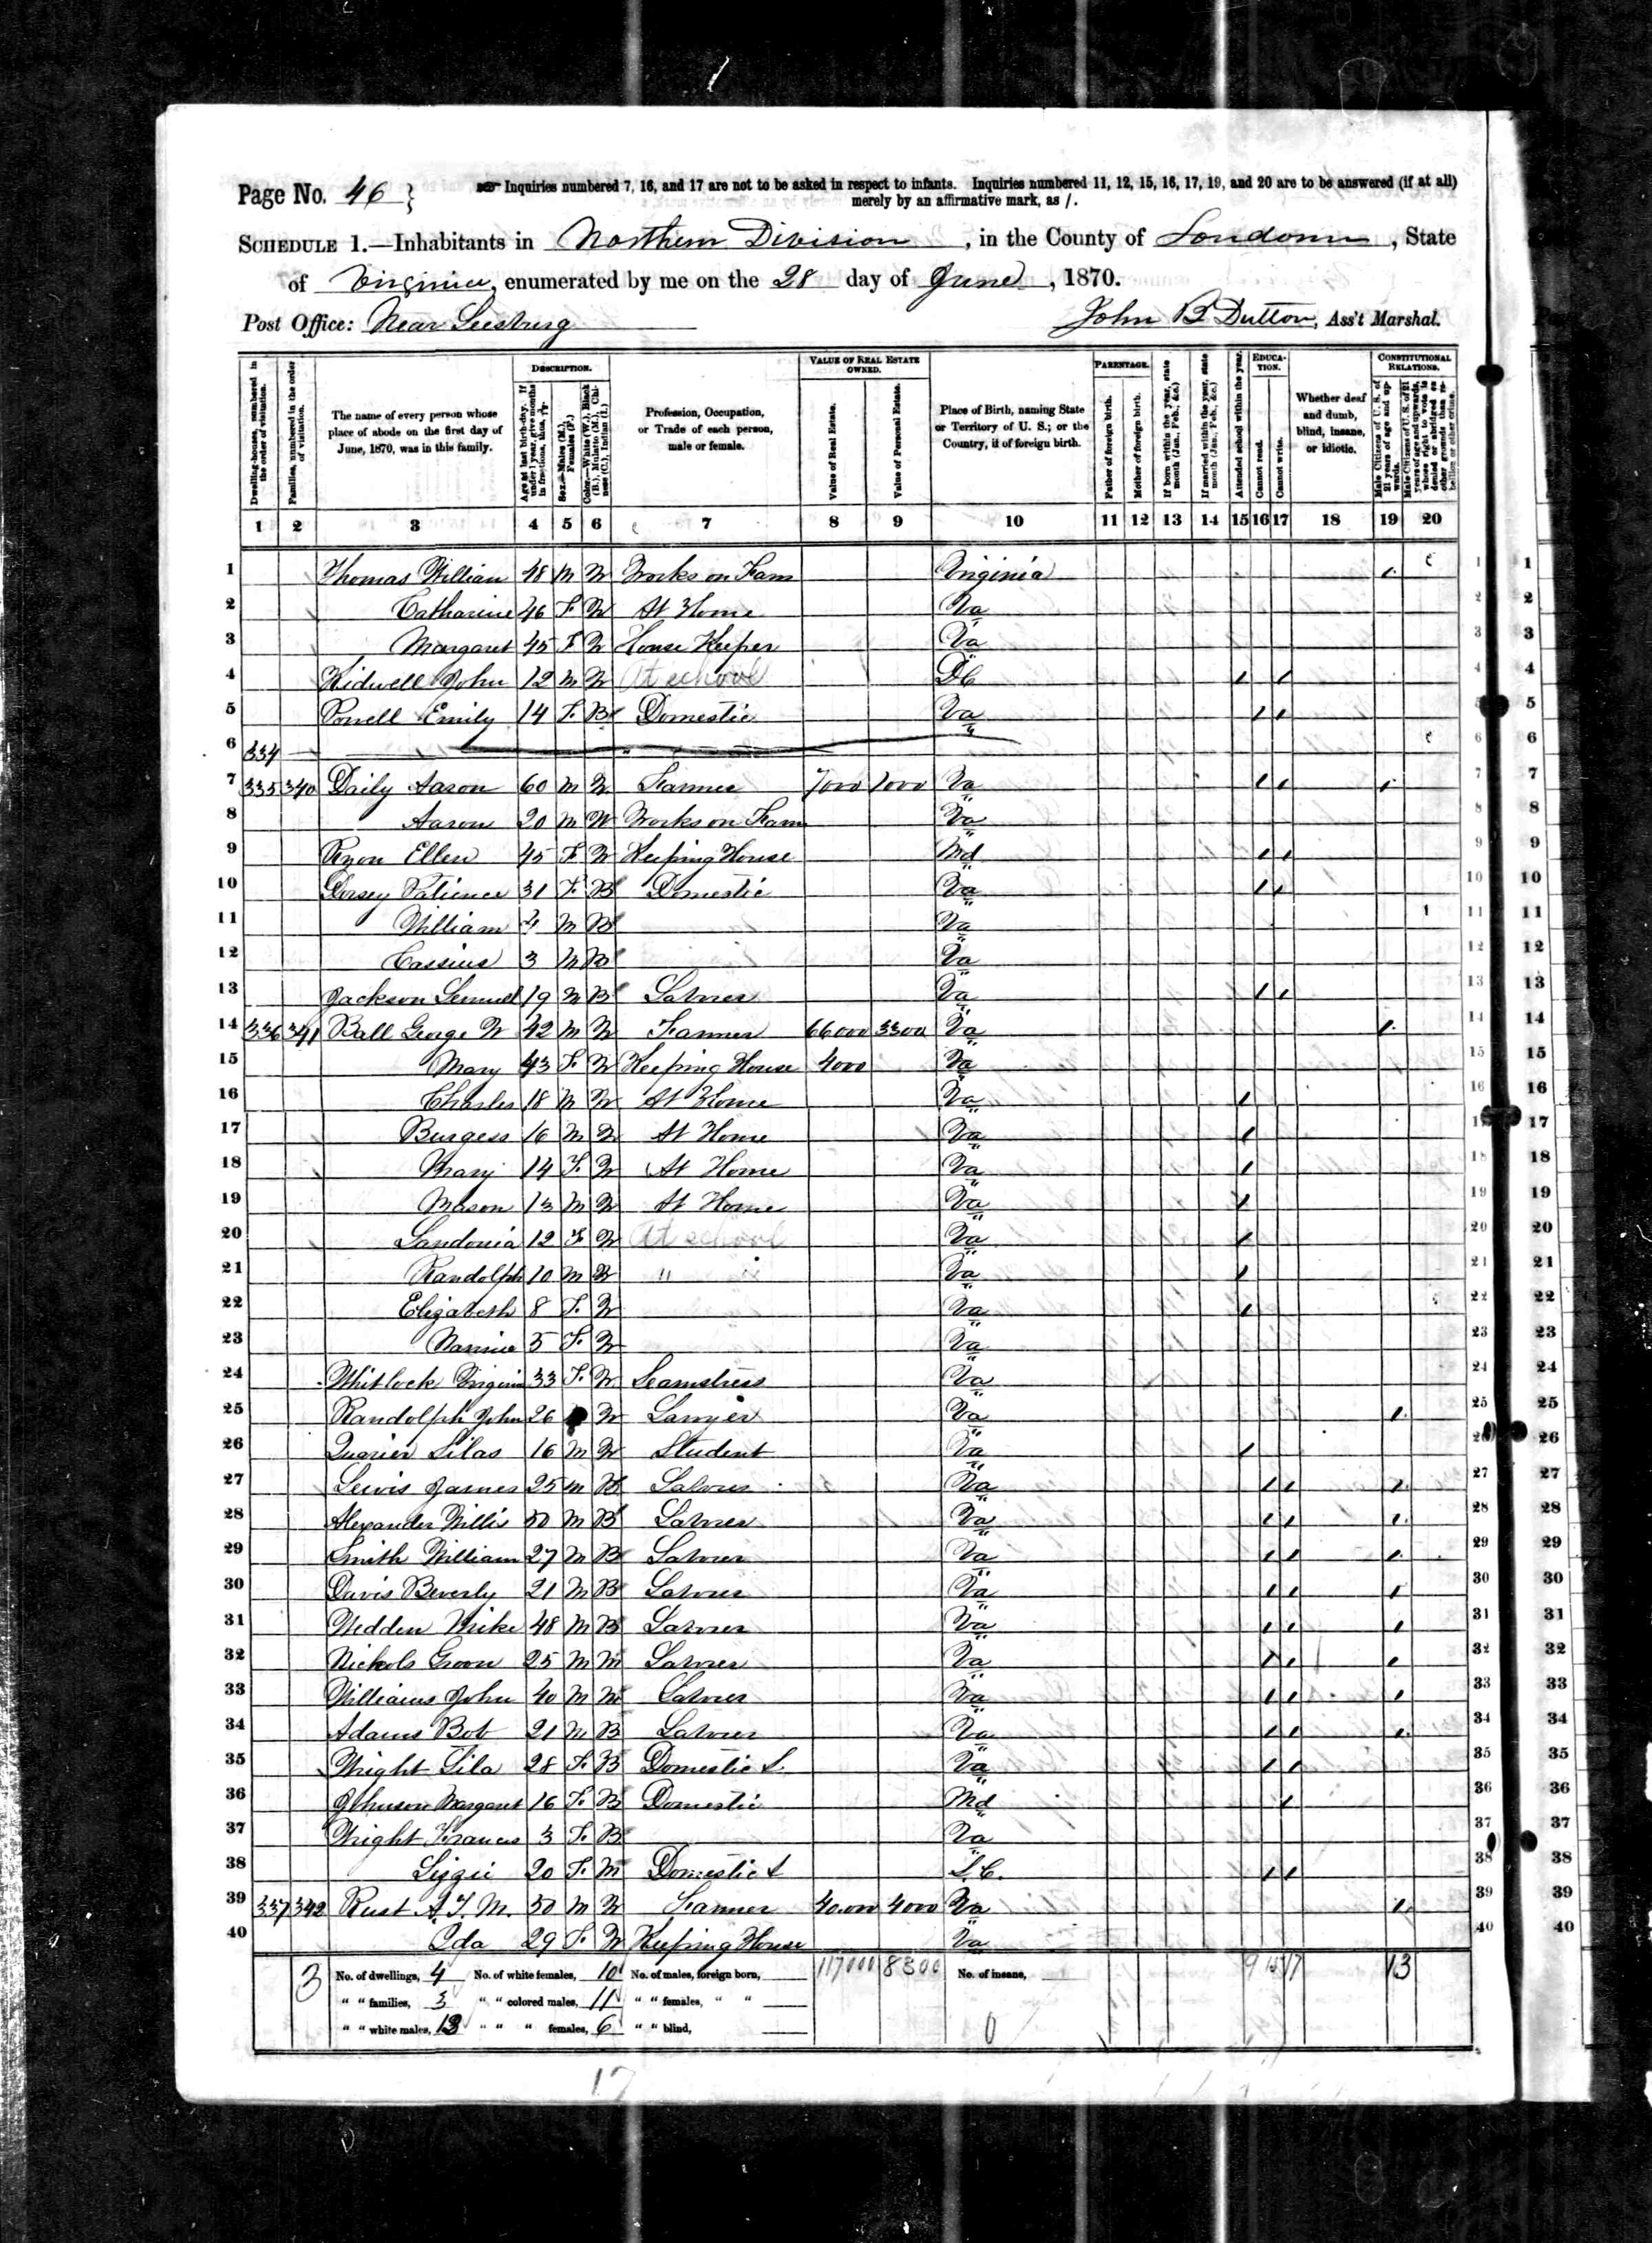 Page No. 46 } Inquiries numbered 7, 16, and 17 are not to be asked in respect to infants. Inquiries numbered 11, 12, 15, 16, 17, 19, and 20 are to be answered (if at all)
merely by an affirmative mark, as /.
SCHEDULE 1.—Inhabitants in Northern Division, in the County of Loudoun, State
of Virginia, enumerated by me on the 28 day of June, 1870.
Post Office: Near Leesburg John B Dutton, Ass't Marshal.
Dwelling-houses, numbered in the order of visitation.
Families, numbered in the order of visitation.
The name of every person whose place of abode on the first day of June, 1870, was in this family.
DESCRIPTION.
Age at last birth-day. If under 1 year, give months in fractions, thus, 3/12.
Sex.—Males (M.), Females (F.)
Color.—White (W.), Black (B.), Mulatto (M.), Chinese (C.), Indian (I.)
Profession, Occupation, or Trade of each person, male or female.
VALUE OF REAL ESTATE OWNED.
Value of Real Estate.
Value of Personal Estate.
Place of Birth, naming State or Territory of U. S.; or the Country, if of foreign birth.
PARENTAGE.
Father of foreign birth.
Mother of foreign birth.
If born within the year, state month (Jan., Feb., &c.)
If married within the year, state month (Jan., Feb., &c.)
Attended school within the year.
EDUCATION.
Cannot read.
Cannot write.
Whether deaf and dumb, blind, insane, or idiotic.
CONSTITUTIONAL RELATIONS.
Male Citizens of U. S. of 21 years of age and upwards.
Male Citizens of U. S. of 21 years of age and upwards, whose right to vote is denied or abridged on other grounds than rebellion or other crime.
1 2 3 4 5 6 7 8 9 10 11 12 13 14 15 16 17 18 19 20
1 Thomas William 48 M W Works on Farm Virginia / 1 1
2 Catharine 46 F W At Home Va 2 2
3 Margaret 45 F W House Keeper Va 3 3
4 Kidwell John 12 M W At school DC / / 4 4
5 Powell Emily 14 F B Domestic Va / / 5 5
6 334 6 6
7 335 340 Daily Aaron 60 M W Farmer 7000 1000 Va / / / 7 7
8 Aaron 20 M W Works on Farm Va 8 8
9 Ryon Ellen 45 F W Keeping House Md / / 9 9
10 Dorsey Patience 31 F B Domestic Va / / 10 10
11 William M B Va 11 11
12 Cassius 3 M B Va 12 12
13 Jackson Lemuel 19 M B Laborer Va / / 13 13
14 336 341 Ball George W 42 M W Farmer 66000 3300 Va / 14 14
15 Mary 43 F W Keeping House 4000 Va 15 15
16 Charles 18 M W At Home Va / 16 16
17 Burgess 16 M W At Home Va / 17 17
18 Mary 14 F W At Home Va / 18 18
19 Mason 13 M W At Home Va / 19 19
20 Landonia 12 F W At school Va / 20 20
21 Randolph 10 M W " " Va / 21 21
22 Elizabeth 8 F W Va / 22 22
23 Nannie 5 F W Va 23 23
24 Whitlock Virginia 33 F W Seamstress Va 24 24
25 Randolph John 26 W Lawyer Va / 25 25
26 Quarier Silas 16 M W Student Va / 26 26
27 Lewis James 25 M B Laborer Va / / / 27 27
28 Alexander Willis 50 M B Laborer Va / / / 28 28
29 Smith William 27 M B Laborer Va / / / 29 29
30 Davis Beverly 21 M B Laborer Va / / / 30 30
31 Wedden Mike 48 M B Laborer Va / / / 31 31
32 Nichols Groon 25 M M Laborer Va / / / 32 32
33 Williams John 40 M M Laborer Va / / / 33 33
34 Adams Bob 21 M B Laborer Va / / / 34 34
35 Wright Lila 28 F B Domestic S. Va / / 35 35
36 Johnson Margaret 16 F B Domestic Md / 36 36
37 Wright Frances 3 F B Va 37 37
38 Lizzie 20 F M Domestic S S.C. / / 38 38
39 337 342 Rust A. T. M. 50 M W Farmer 40,000 4000 Va / 39 39
40 Ida 29 F W Keeping House Va 40 40
3 No. of dwellings, 4 No. of white females, 10 No. of males, foreign born, 117000 8300 No. of insane, 9 15 17 13
" " families, 3 " " colored males, 11 " " females, " "
" " white males, 13 " " " females, 6 " " blind, 0
17